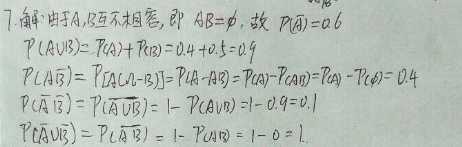 7.解:由于A,B互不相容,即 AB=φ,故 P(A̅)=0.6
P(A∪B)=P(A)+P(B)=0.4+0.5=0.9
P(AB̅)=P[A(Ω-B)]=P(A-AB)=P(A)-P(AB)=P(A)-P(φ)=0.4
P(A̅ B̅)=P(A̅∪̅B̅)=1-P(A∪B)=1-0.9=0.1
P(A̅∪B̅)=P(A̅B̅)=1-P(AB)=1-0=1.